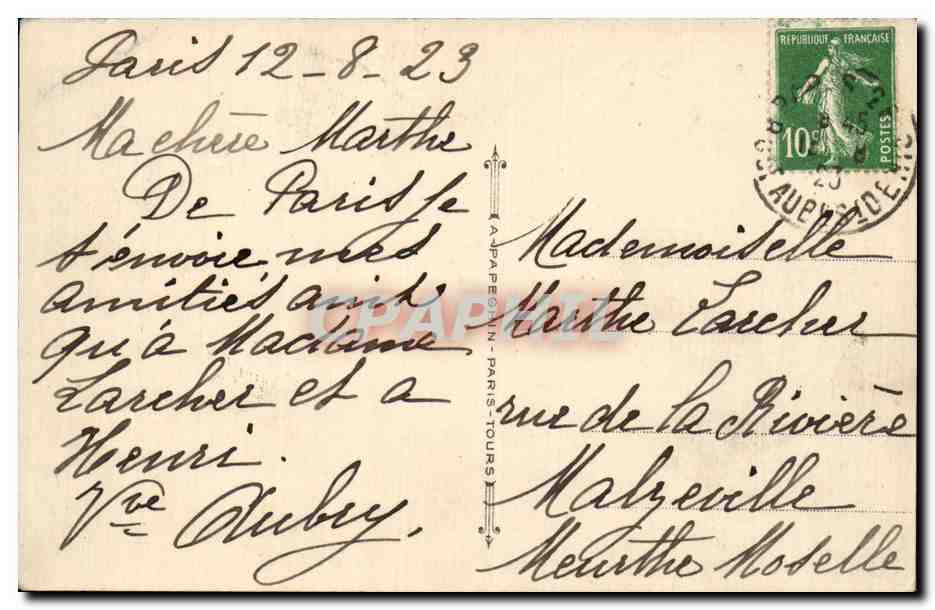 Paris 12-8-23
Ma chère Marthe
De Paris je
t'énvoie mes
amitiés ainsi
qu'à Madame
Larcher et a
Henri.
Vve Aubry,
A-PAPEGHIN-PARIS-TOURS
REPUBLIQUE FRANÇAISE
10c
POSTES
23
Mademoiselle
Marthe Larcher
rue de la Rivière
Malzeville
Meurthe Moselle
CPAPHIL